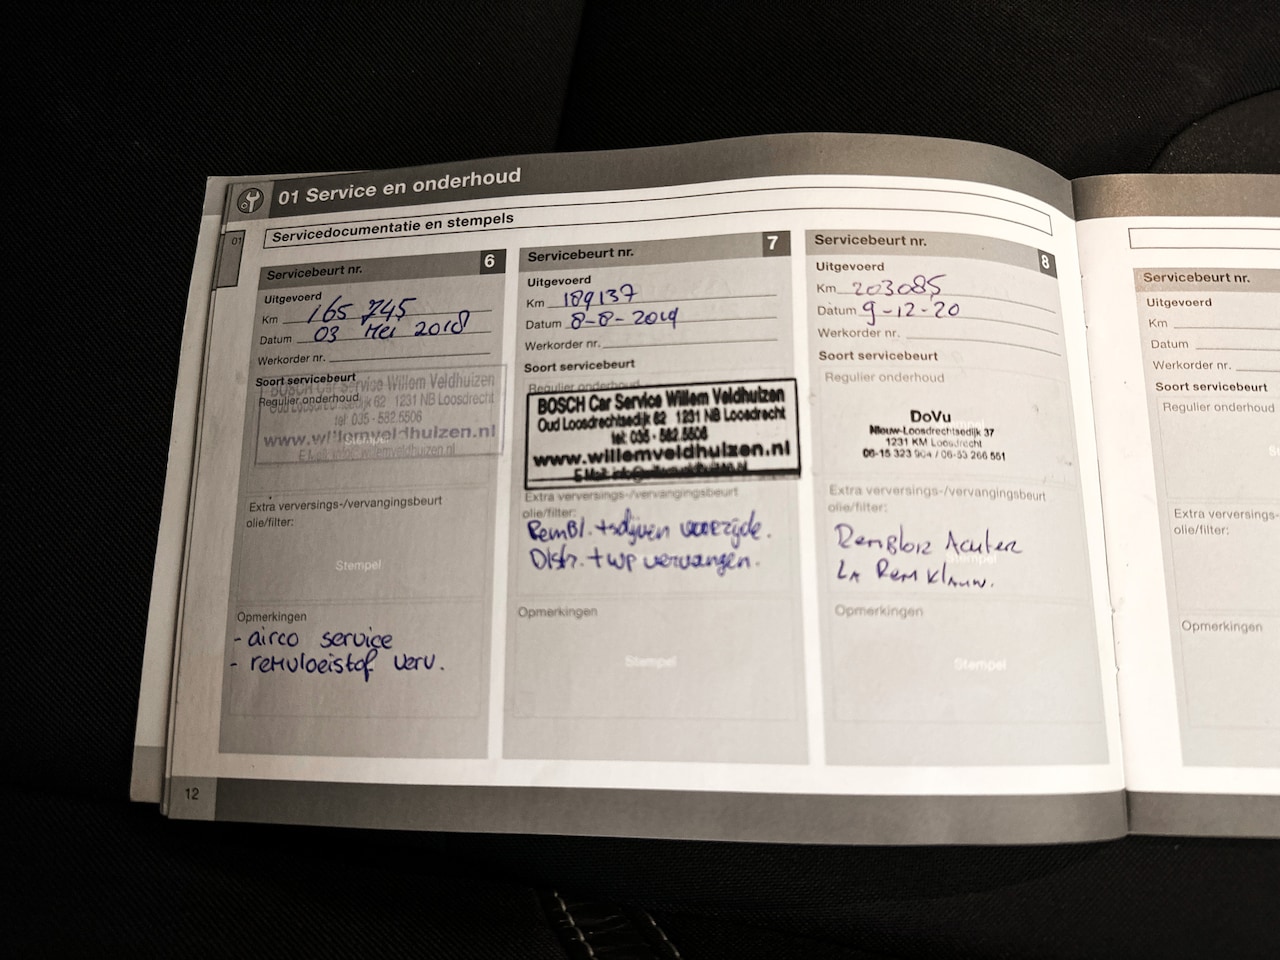 01 Service en onderhoud
01
Servicedocumentatie en stempels
Servicebeurt nr. 6
Uitgevoerd
Km 165 745
Datum 03 Mei 2018
Werkorder nr.
Soort servicebeurt
Regulier onderhoud
BOSCH Car Service Willem Veldhuizen
Oud Loosdrechtsedijk 62 1231 NB Loosdrecht
tel: 035 - 582.5506
www.willemveldhuizen.nl
E-Mail: info@willemveldhuizen.nl
Extra verversings-/vervangingsbeurt
olie/filter:
Stempel
Opmerkingen
- airco service
- remvloeistof verv.
Servicebeurt nr. 7
Uitgevoerd
Km 189137
Datum 8-8-2019
Werkorder nr.
Soort servicebeurt
Regulier onderhoud
BOSCH Car Service Willem Veldhuizen
Oud Loosdrechtsedijk 62 1231 NB Loosdrecht
tel: 035 - 582.5506
www.willemveldhuizen.nl
E-Mail: info@willemveldhuizen.nl
Extra verversings-/vervangingsbeurt
olie/filter:
Rembl. + schijven voorzijde.
Distr. + wp vervangen.
Opmerkingen
Stempel
Servicebeurt nr. 8
Uitgevoerd
Km 203085
Datum 9-12-20
Werkorder nr.
Soort servicebeurt
Regulier onderhoud
DoVu
Nieuw-Loosdrechtsedijk 37
1231 KM Loosdrecht
06-15 323 904 / 06-53 266 551
Extra verversings-/vervangingsbeurt
olie/filter:
Stempel
LA Remklauw.
Opmerkingen
Stempel
Servicebeurt nr.
Uitgevoerd
Km
Datum
Werkorder nr.
Soort servicebeurt
Regulier onderhoud
Extra verversings-
olie/filter:
Opmerkingen
12